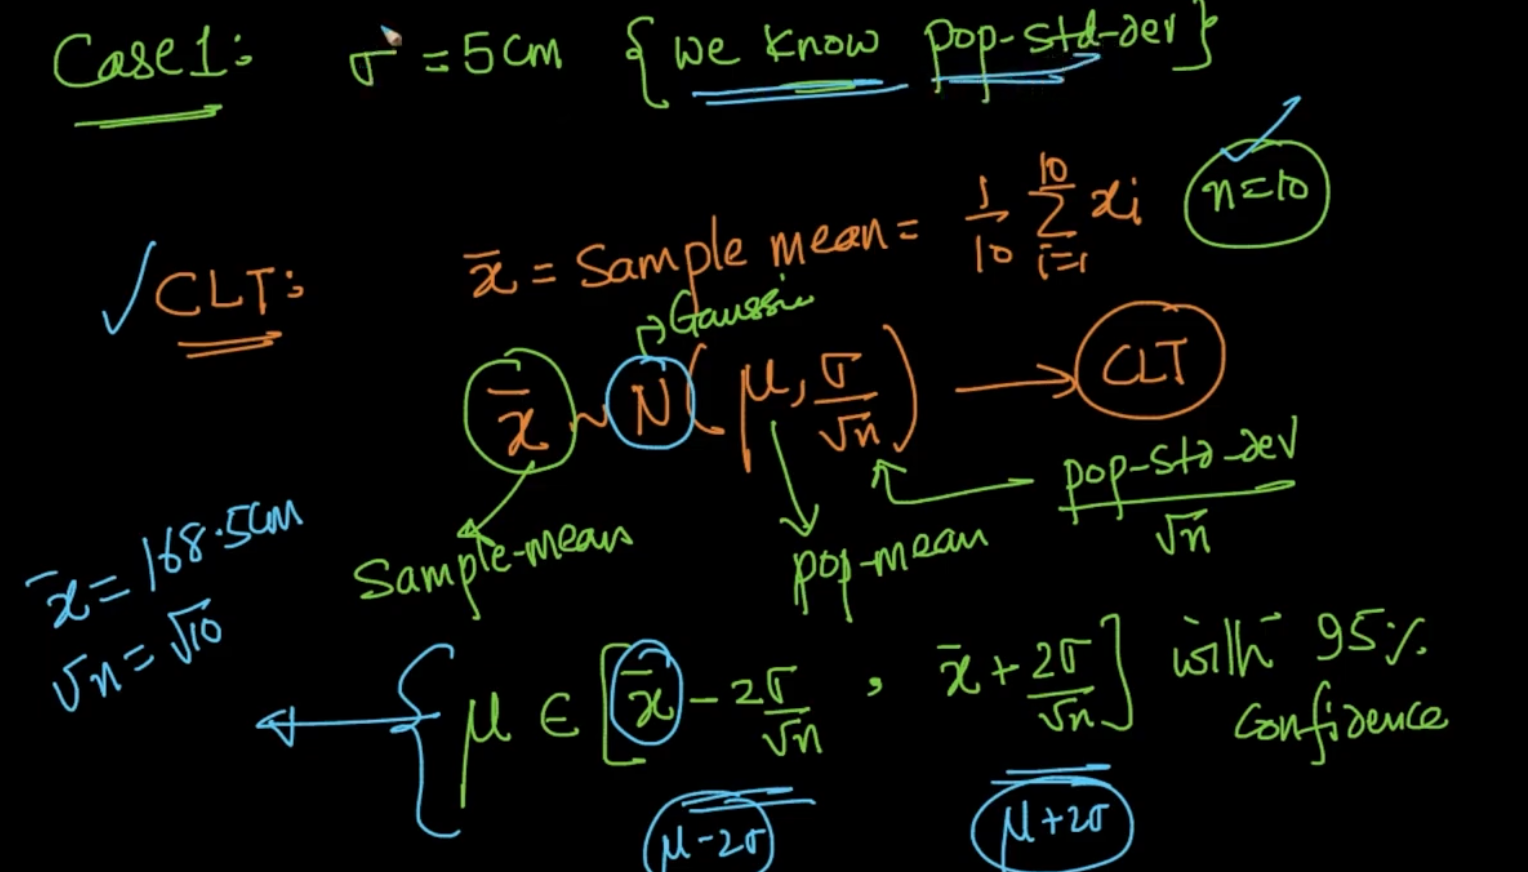 Case1: σ = 5cm {we know pop-std-dev}
n=10
✓CLT: x̄ = Sample mean = 1/10 Σ_{i=1}^{10} xi
→Gaussin
x̄ ~ N(μ, σ/√n) → CLT
pop-std-dev/√n
Sample-mean pop-mean
x̄ = 168.5cm
√n = √10
μ ∈ [x̄ - 2σ/√n, x̄ + 2σ/√n] with 95% confidence
μ-2σ μ+2σ